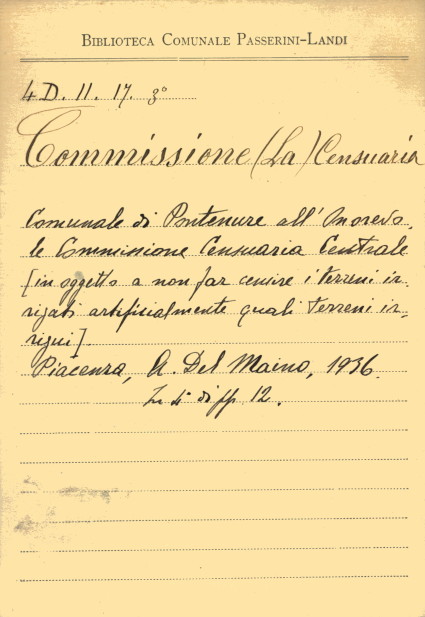 BIBLIOTECA COMUNALE PASSERINI-LANDI
4 D. II. 17. 3°
Commissione (La) Censuaria
Comunale di Pontenure all'Onorevo-
le Commissione Censuaria Centrale
[in oggetto a non far censire i terreni ir-
rigati artificialmente quali terreni ir-
rigui].
Piacenza, A. Del Maino, 1936.
In 4° di pp. 12.